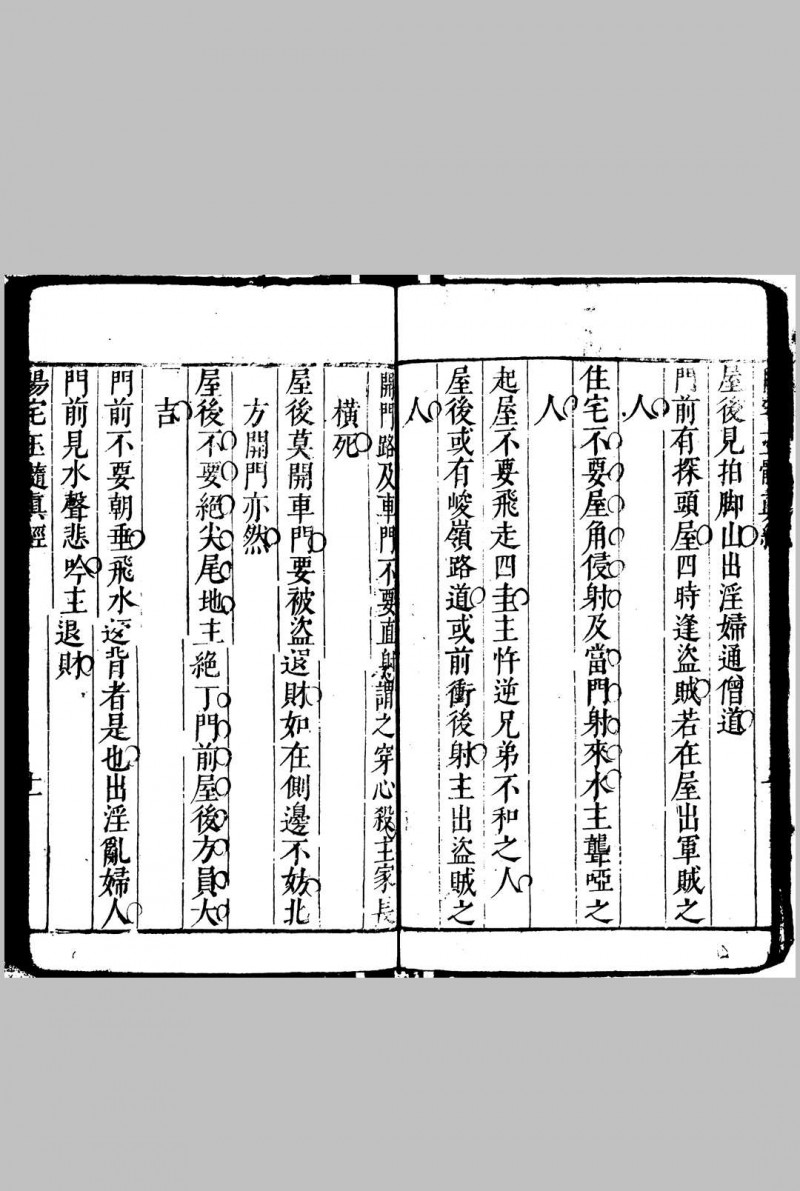 屋後見拍脚山出淫婦通僧道
門前有探頭屋四時逢盜賊若在屋出軍賊之
人
住宅不要屋角侵射及當門射來水主聾啞之
人
起屋不要飛走四圭主忤逆兄弟不和之人
屋後或有峻嶺路道或前衝後射主出盜賊之
人
開門路及車門不要直射謂之穿心殺主家長
橫死
屋後莫開車門要被盜退財如在側邊不妨北
方開門亦然
屋後不要絕尖尾地主絕丁門前屋後方員大
吉
門前不要朝垂飛水返背者是也出淫亂婦人
門前見水聲悲吟主退財
陽宅玉髓眞經
十一